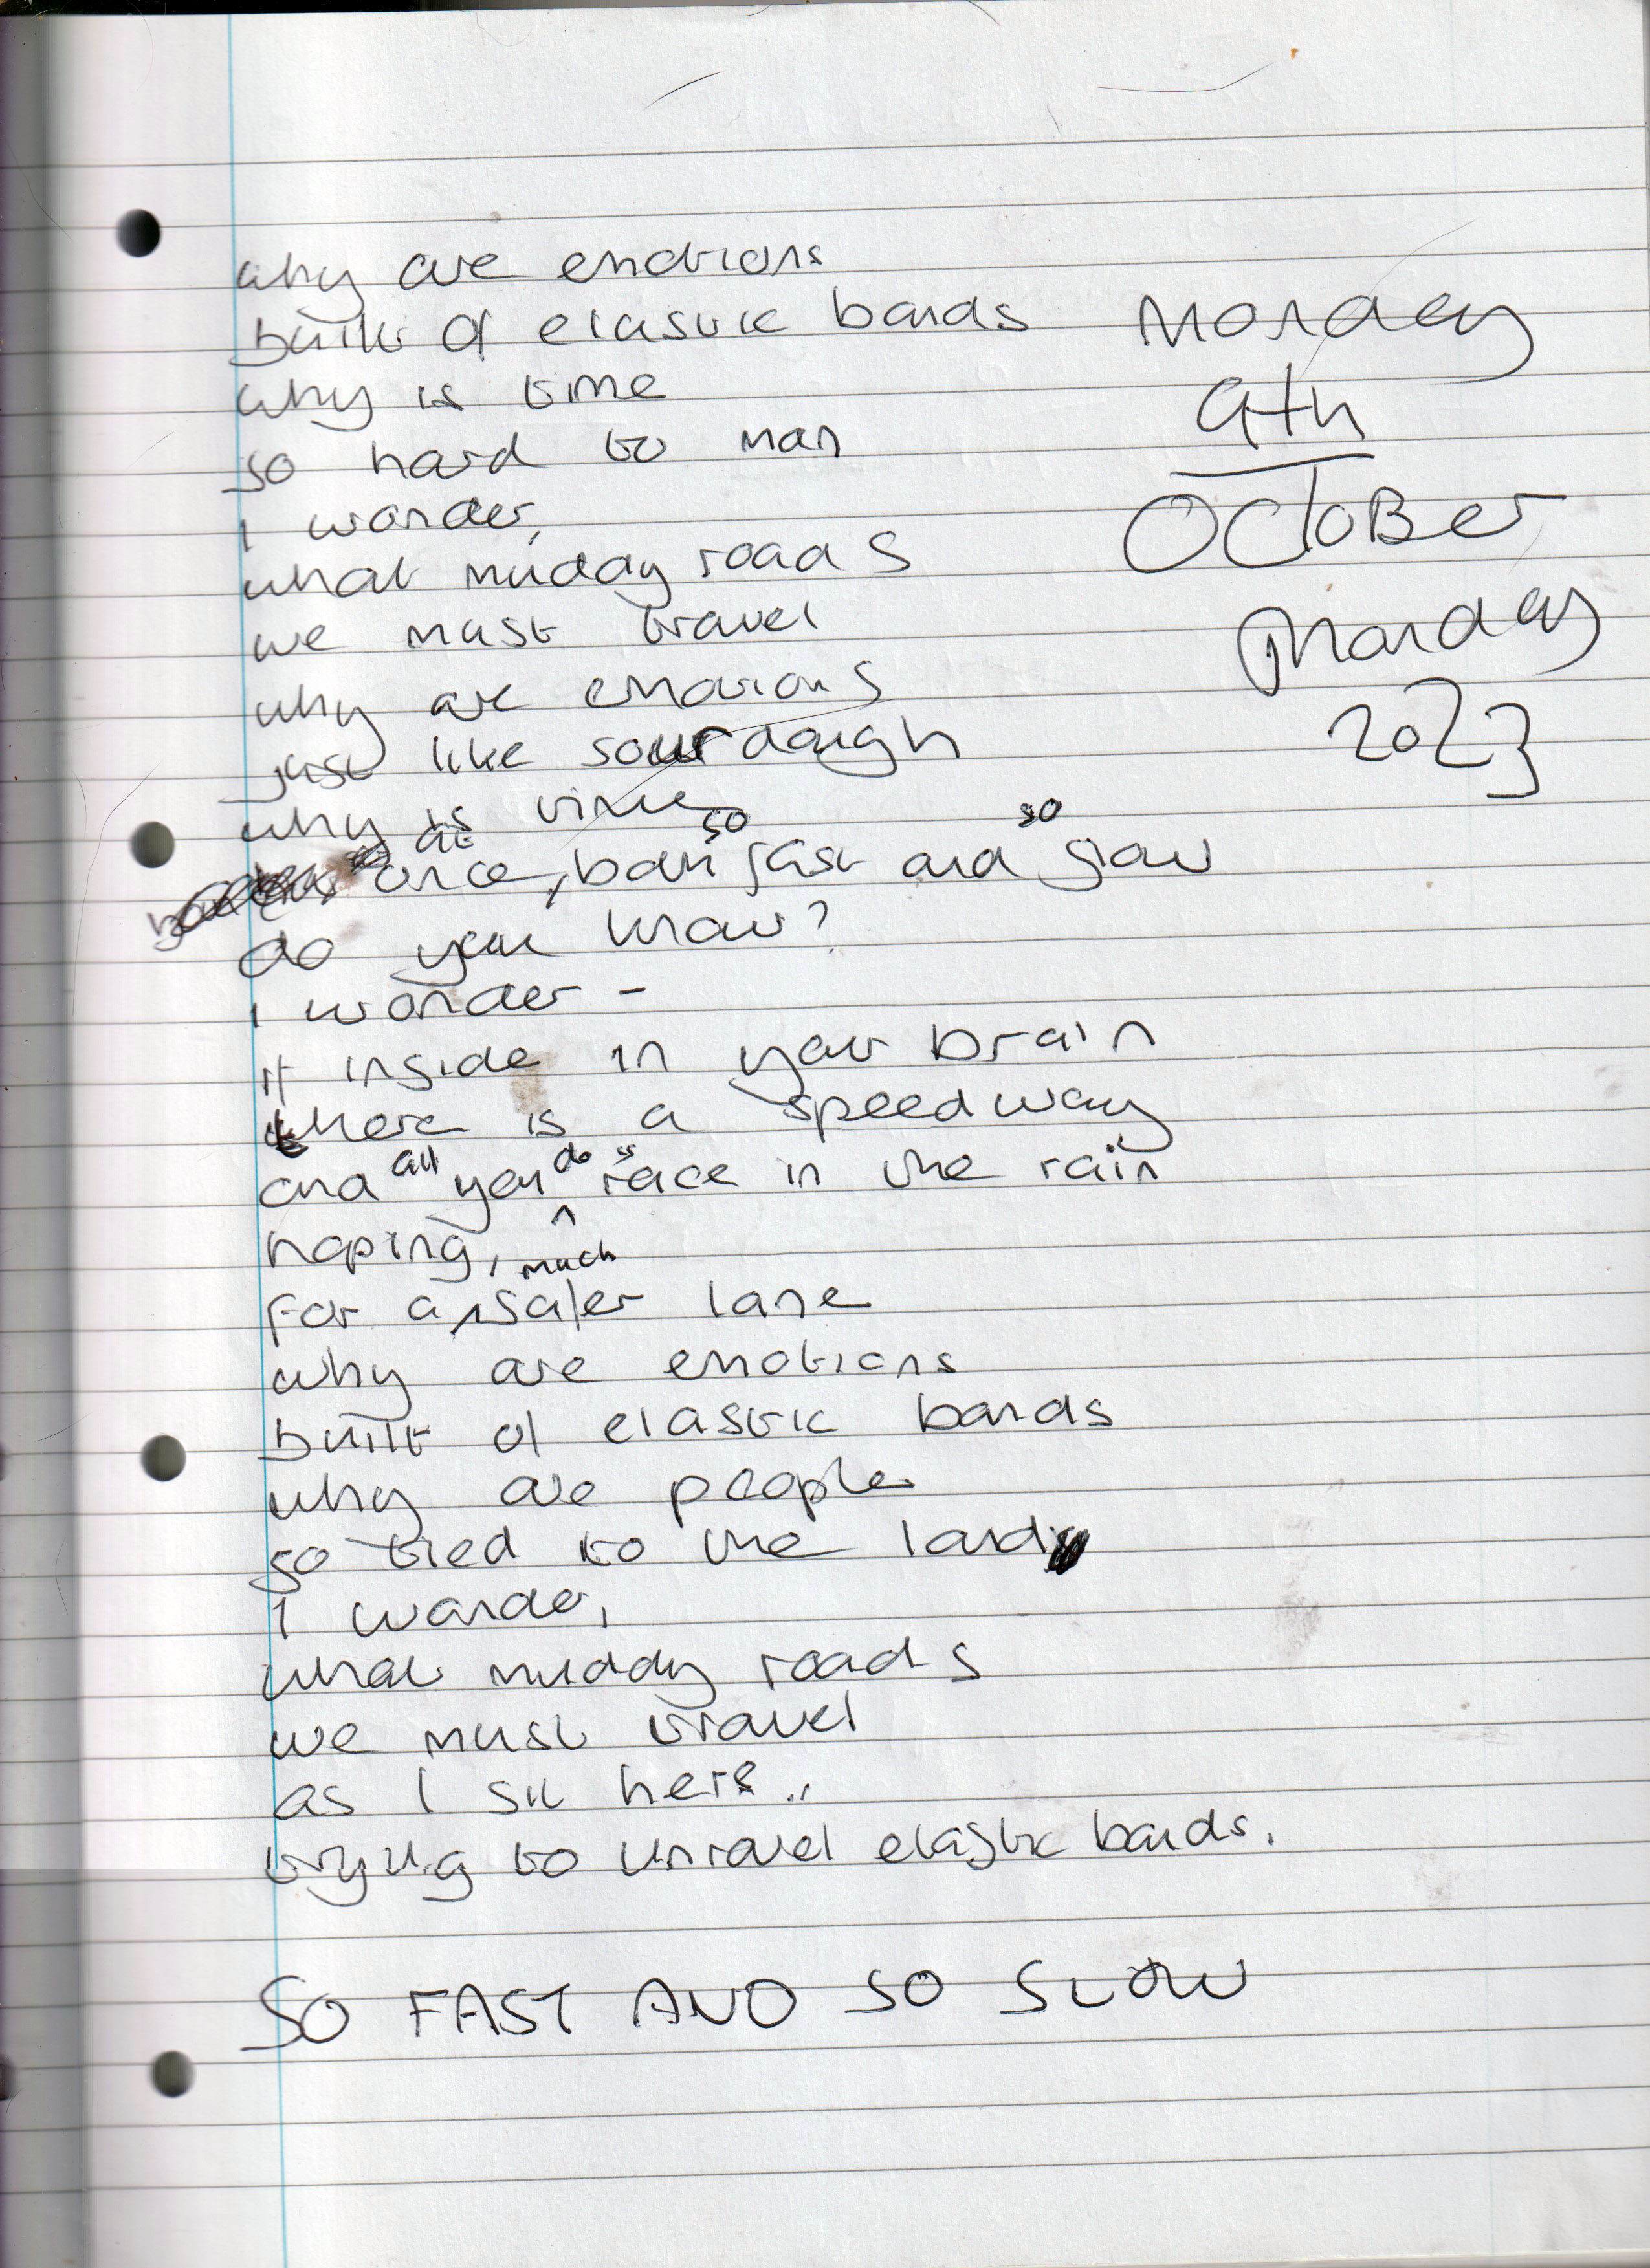 why are emotions
built of elastic bands
why is time
so hard to man
I wonder,
what muddy roads
we must travel
why are emotions
just like sourdough
why is time
at once, both so fast and so slow
do you know?
I wonder -
if inside in your brain
there is a speedway
and all you do is race in the rain
hoping,
for a much safer lane
why are emotions
built of elastic bands
why are people
so tied to the land
I wonder,
what muddy roads
we must travel
as I sit here..
trying to unravel elastic bands.
SO FAST AND SO SLOW
Monday
9th
OCTOBer
Monday
2023